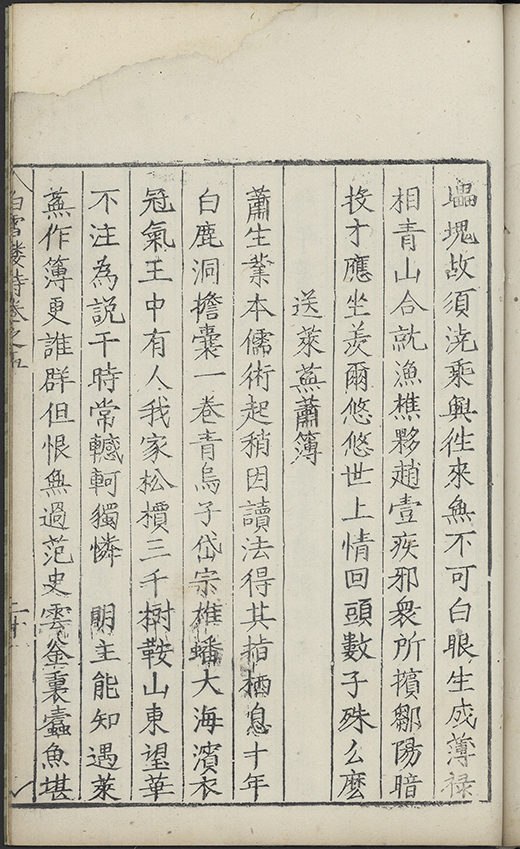 塊故須澆乘興徃來無不可白眼生成薄禄
相青山合就漁樵夥趙壹疾邪衆所擯鄒陽暗
投才應坐羨爾悠悠世上情回頭數子殊么麽
送萊蕪蕭簿
蕭生業本儒術起稍因讀法得其指栖息十年
白鹿洞擔囊一卷青烏子岱宗雄蟠大海濱衣
冠氣王中有人我家松檟三千樹鞍山東望華
不注為說干時常轗軻獨憐　明主能知遇萊
蕪作簿更誰群但恨無過范史雲釜裏蠹魚堪
白雪樓詩卷之五